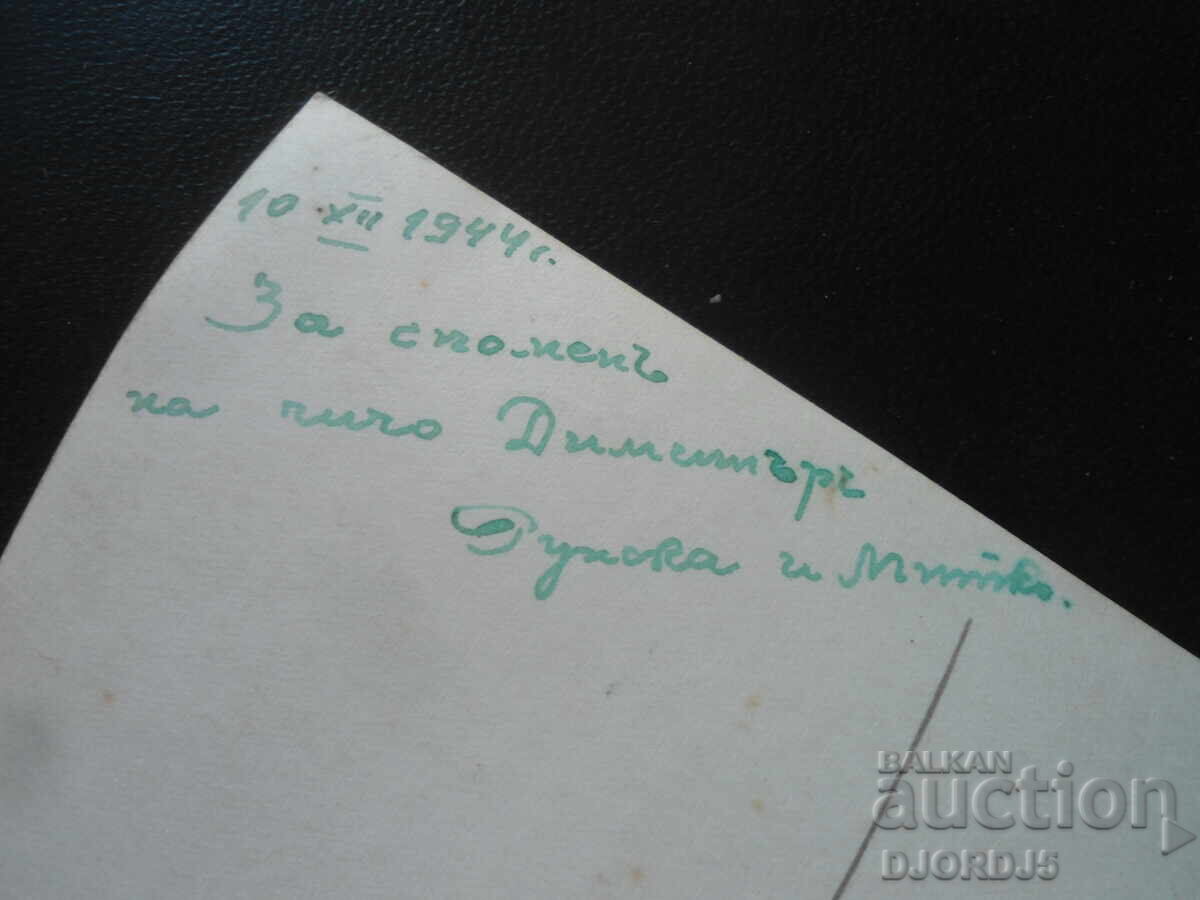 10 XII 1944 г.
За споменъ
на чичо Димитъръ
и Митко.
BALKAN
auction
DJORDJ5